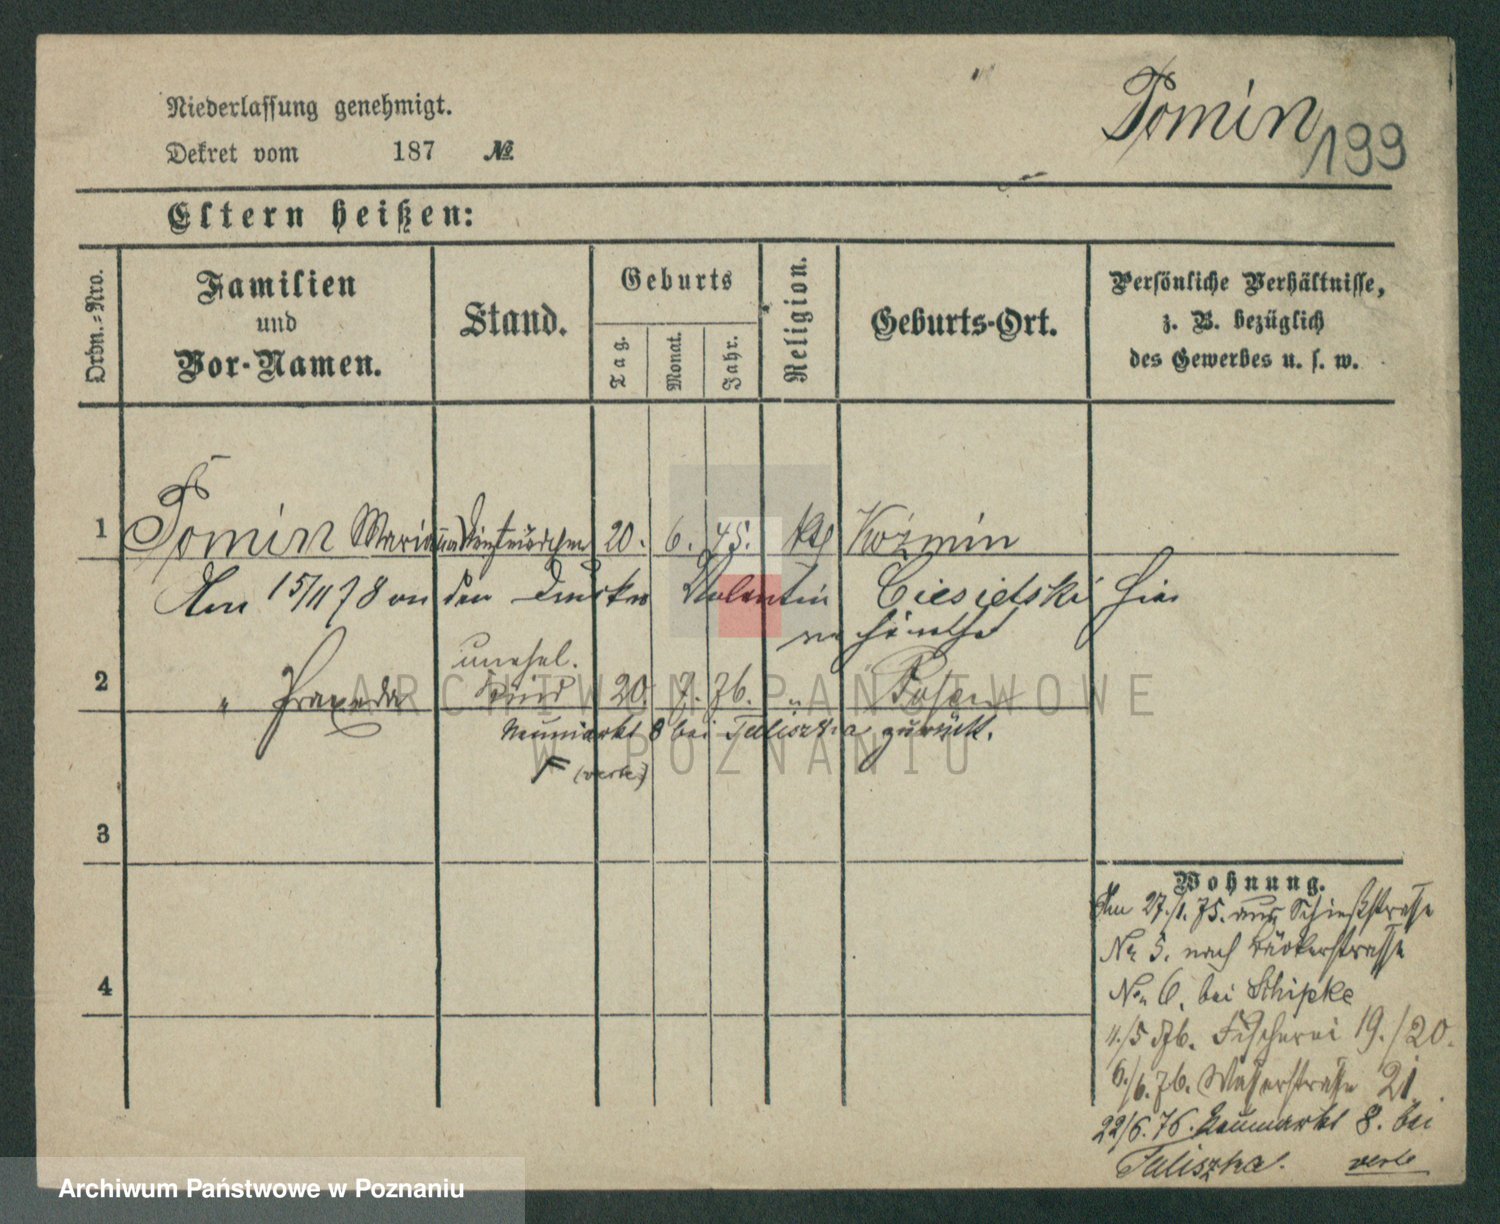 Niederlassung genehmigt.
Dekret vom 187 №
Tomin
199
Eltern heißen:
Ordn.-Nro.
Familien
und
Vor-Namen.
Stand.
Geburts
Tag.
Monat.
Jahr.
Religion.
Geburts-Ort.
Persönliche Verhältnisse,
z. B. bezüglich
des Gewerbes u. s. w.
1 Tomin Marianna Dienstmädchen 20. 6. 45. kth Koźmin
Am 15/11 78 an den Valentin Ciesielski hier
verheirathet
unehel.
2 " Praxeda Kind 20. 7. 76. " Posen
Neumarkt 8 bei Taliszka zurück.
(verte)
3
4
Wohnung.
Am 27./1. 75. aus Schießstrasse
No 5. nach Bäckerstrasse
No 6. bei Schipke
4./5 76. Fischerei 19./20.
6./6. 76. Wasserstrasse 21
22/6. 76. Neumarkt 8. bei
Taliszka. verte
ARCHIWUM PAŃSTWOWE
W POZNANIU
Archiwum Państwowe w Poznaniu